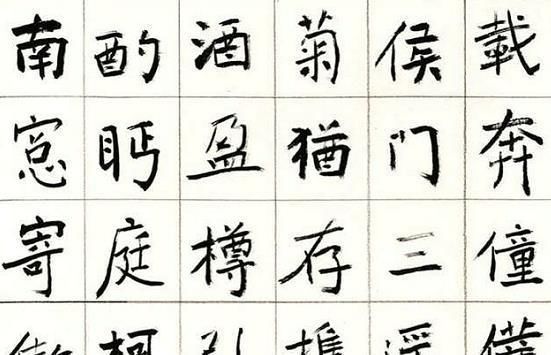 載奔僮
侯门三
菊猶存
酒盈樽引
酌眄庭柯
南窓寄